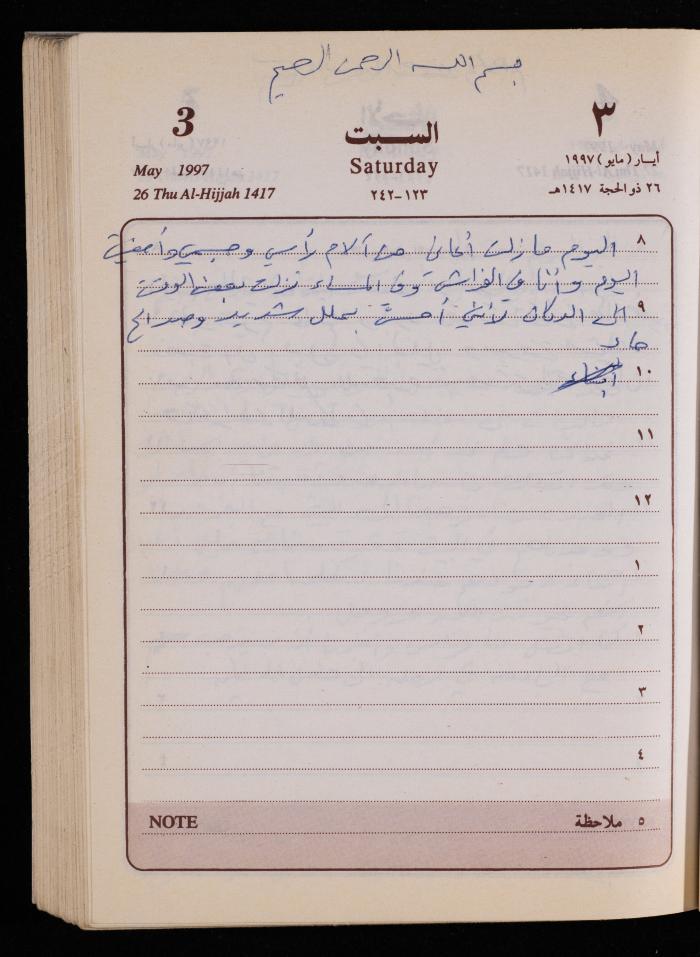 بسم الله الرحمن الرحيم
3
السبت
٣
May 1997
Saturday
أيـار (مايو) ١٩٩٧
26 Thu Al-Hijjah 1417
١٢٣-٢٤٢
٢٦ ذو الحجة ١٤١٧هـ
٨ اليوم مازلت أعاني من آلام رأسي وجسمي وأمضيت
اليوم وأنا في الفراش وفي المساء نزلت بعض الوقت
٩ الى الدكان لأنني أحسست بملل شديد
١٠
١١
١٢
١
٢
٣
٤
NOTE
٥ ملاحظة